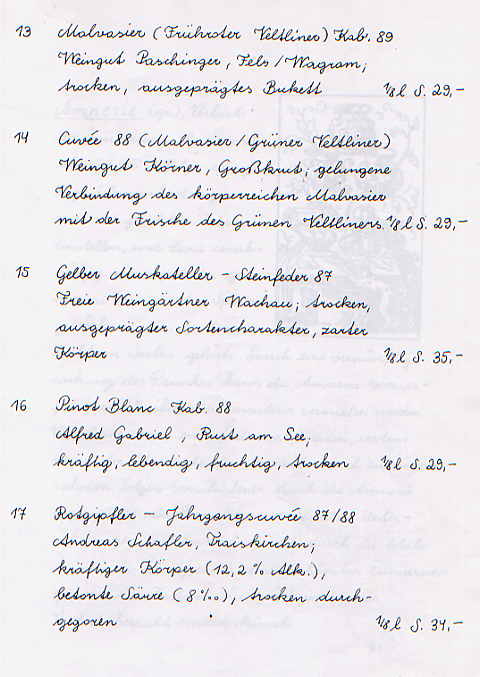 13 Malvasier (Frühroter Veltliner) Kab. 89
Weingut Paschinger, Fels/Wagram;
trocken, ausgeprägtes Bukett 1/8 l S. 29,-
14 Cuvée 88 (Malvasier/Grüner Veltliner)
Weingut Körner, Großkrut; gelungene
Verbindung des körperreichen Malvasier
mit der Frische des Grünen Veltliners. 1/8 l S. 29,-
15 Gelber Muskateller - Steinfeder 87
Freie Weingärtner Wachau; trocken,
ausgeprägter Sortencharakter, zarter
Körper 1/8 l S. 35,-
16 Pinot Blanc Kab. 88
Alfred Gabriel, Rust am See;
kräftig, lebendig, fruchtig, trocken 1/8 l S. 29,-
17 Rotgipfler - Jahrgangscuvée 87/88
Andreas Schafler, Traiskirchen;
kräftiger Körper (12,2 % Alk.),
betonte Säure (8 ‰), trocken durch-
gegoren 1/8 l S. 34,-